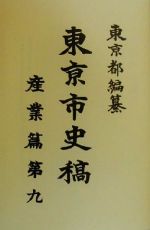 東京都編纂
東亰市史稿
産業篇第九